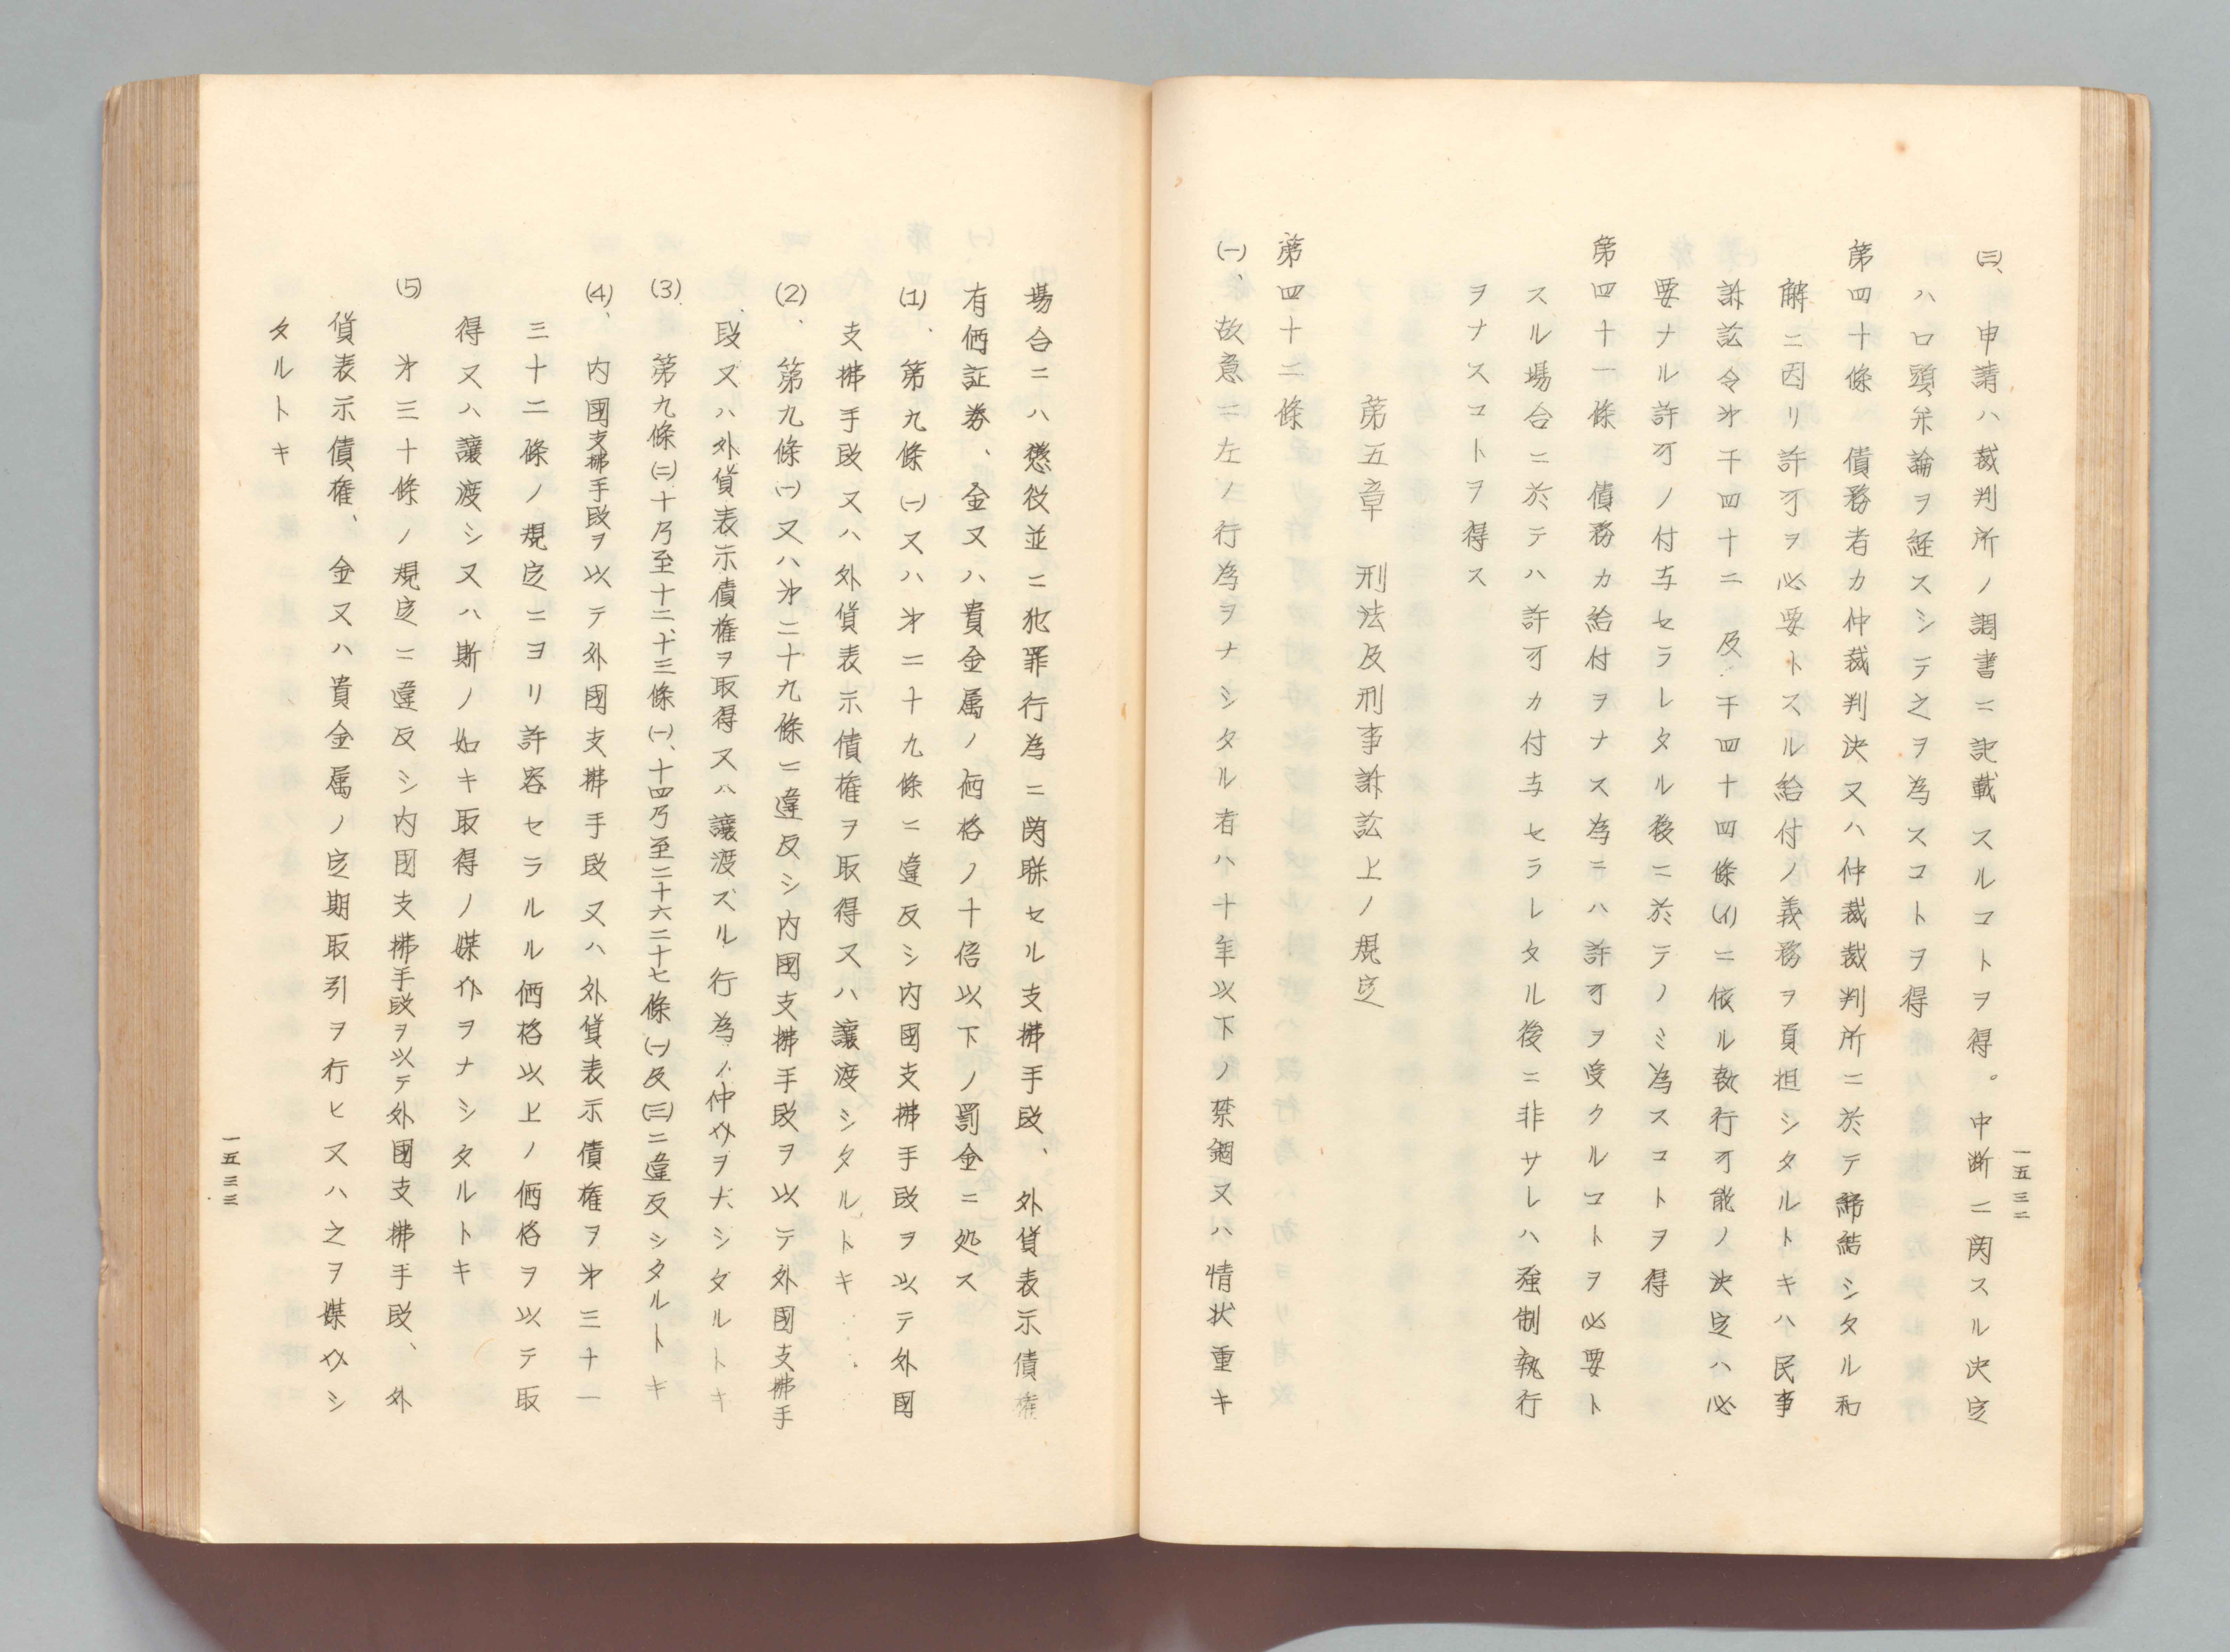 一五三二
㈢、申請ハ裁判所ノ調書ニ記載スルコトヲ得。中断ニ関スル決定
ハ口頭弁論ヲ経スシテ之ヲ為スコトヲ得
第四十條　債務者カ仲裁判決又ハ仲裁裁判所ニ於テ締結シタル和
解ニ因リ許可ヲ必要トスル給付ノ義務ヲ負担シタルトキハ民事
訴訟令才千四十二及千四十四條(イ)ニ依ル執行可能ノ決定ハ必
要ナル許可ノ付与セラレタル後ニ於テノミ為スコトヲ得
第四十一條　債務カ給付ヲナス為ニハ許可ヲ受クルコトヲ必要ト
スル場合ニ於テハ許可カ付与セラレタル後ニ非サレハ强制執行
ヲナスコトヲ得ス
第五章　刑法及刑事訴訟上ノ規定
第四十二條
㈠、故意ニ左ノ行為ヲナシタル者ハ十年以下ノ禁錮又ハ情状重キ
場合ニハ懲役並ニ犯罪行為ニ関聯セル支拂手段、外貨表示債権
有価証券、金又ハ貴金属ノ価格ノ十倍以下ノ罰金ニ処ス
(1)、第九條㈠又ハ才二十九條ニ違反シ内國支拂手段ヲ以テ外國
支拂手段又ハ外貨表示債権ヲ取得又ハ讓渡シタルトキ
(2)、第九條㈠又ハ才二十九條ニ違反シ内國支拂手段ヲ以テ外國支拂手
段又ハ外貨表示債権ヲ取得又ハ讓渡スル行為ノ仲介ヲナシタルトキ
(3)、第九條㈡十乃至十二、十三條㈠、十四乃至二十六二十七條㈠及㈢ニ違反シタルトキ
(4)、内國支拂手段ヲ以テ外國支拂手段又ハ外貨表示債権ヲ才三十一
三十二條ノ規定ニヨリ許容セラルル価格以上ノ価格ヲ以テ取
得又ハ讓渡シ又ハ斯ノ如キ取得ノ媒介ヲナシタルトキ
(5)　才三十條ノ規定ニ違反シ内国支拂手段ヲ以テ外國支拂手段、外
貨表示債権、金又ハ貴金属ノ定期取引ヲ行ヒ又ハ之ヲ媒介シ
タルトキ
一五三三